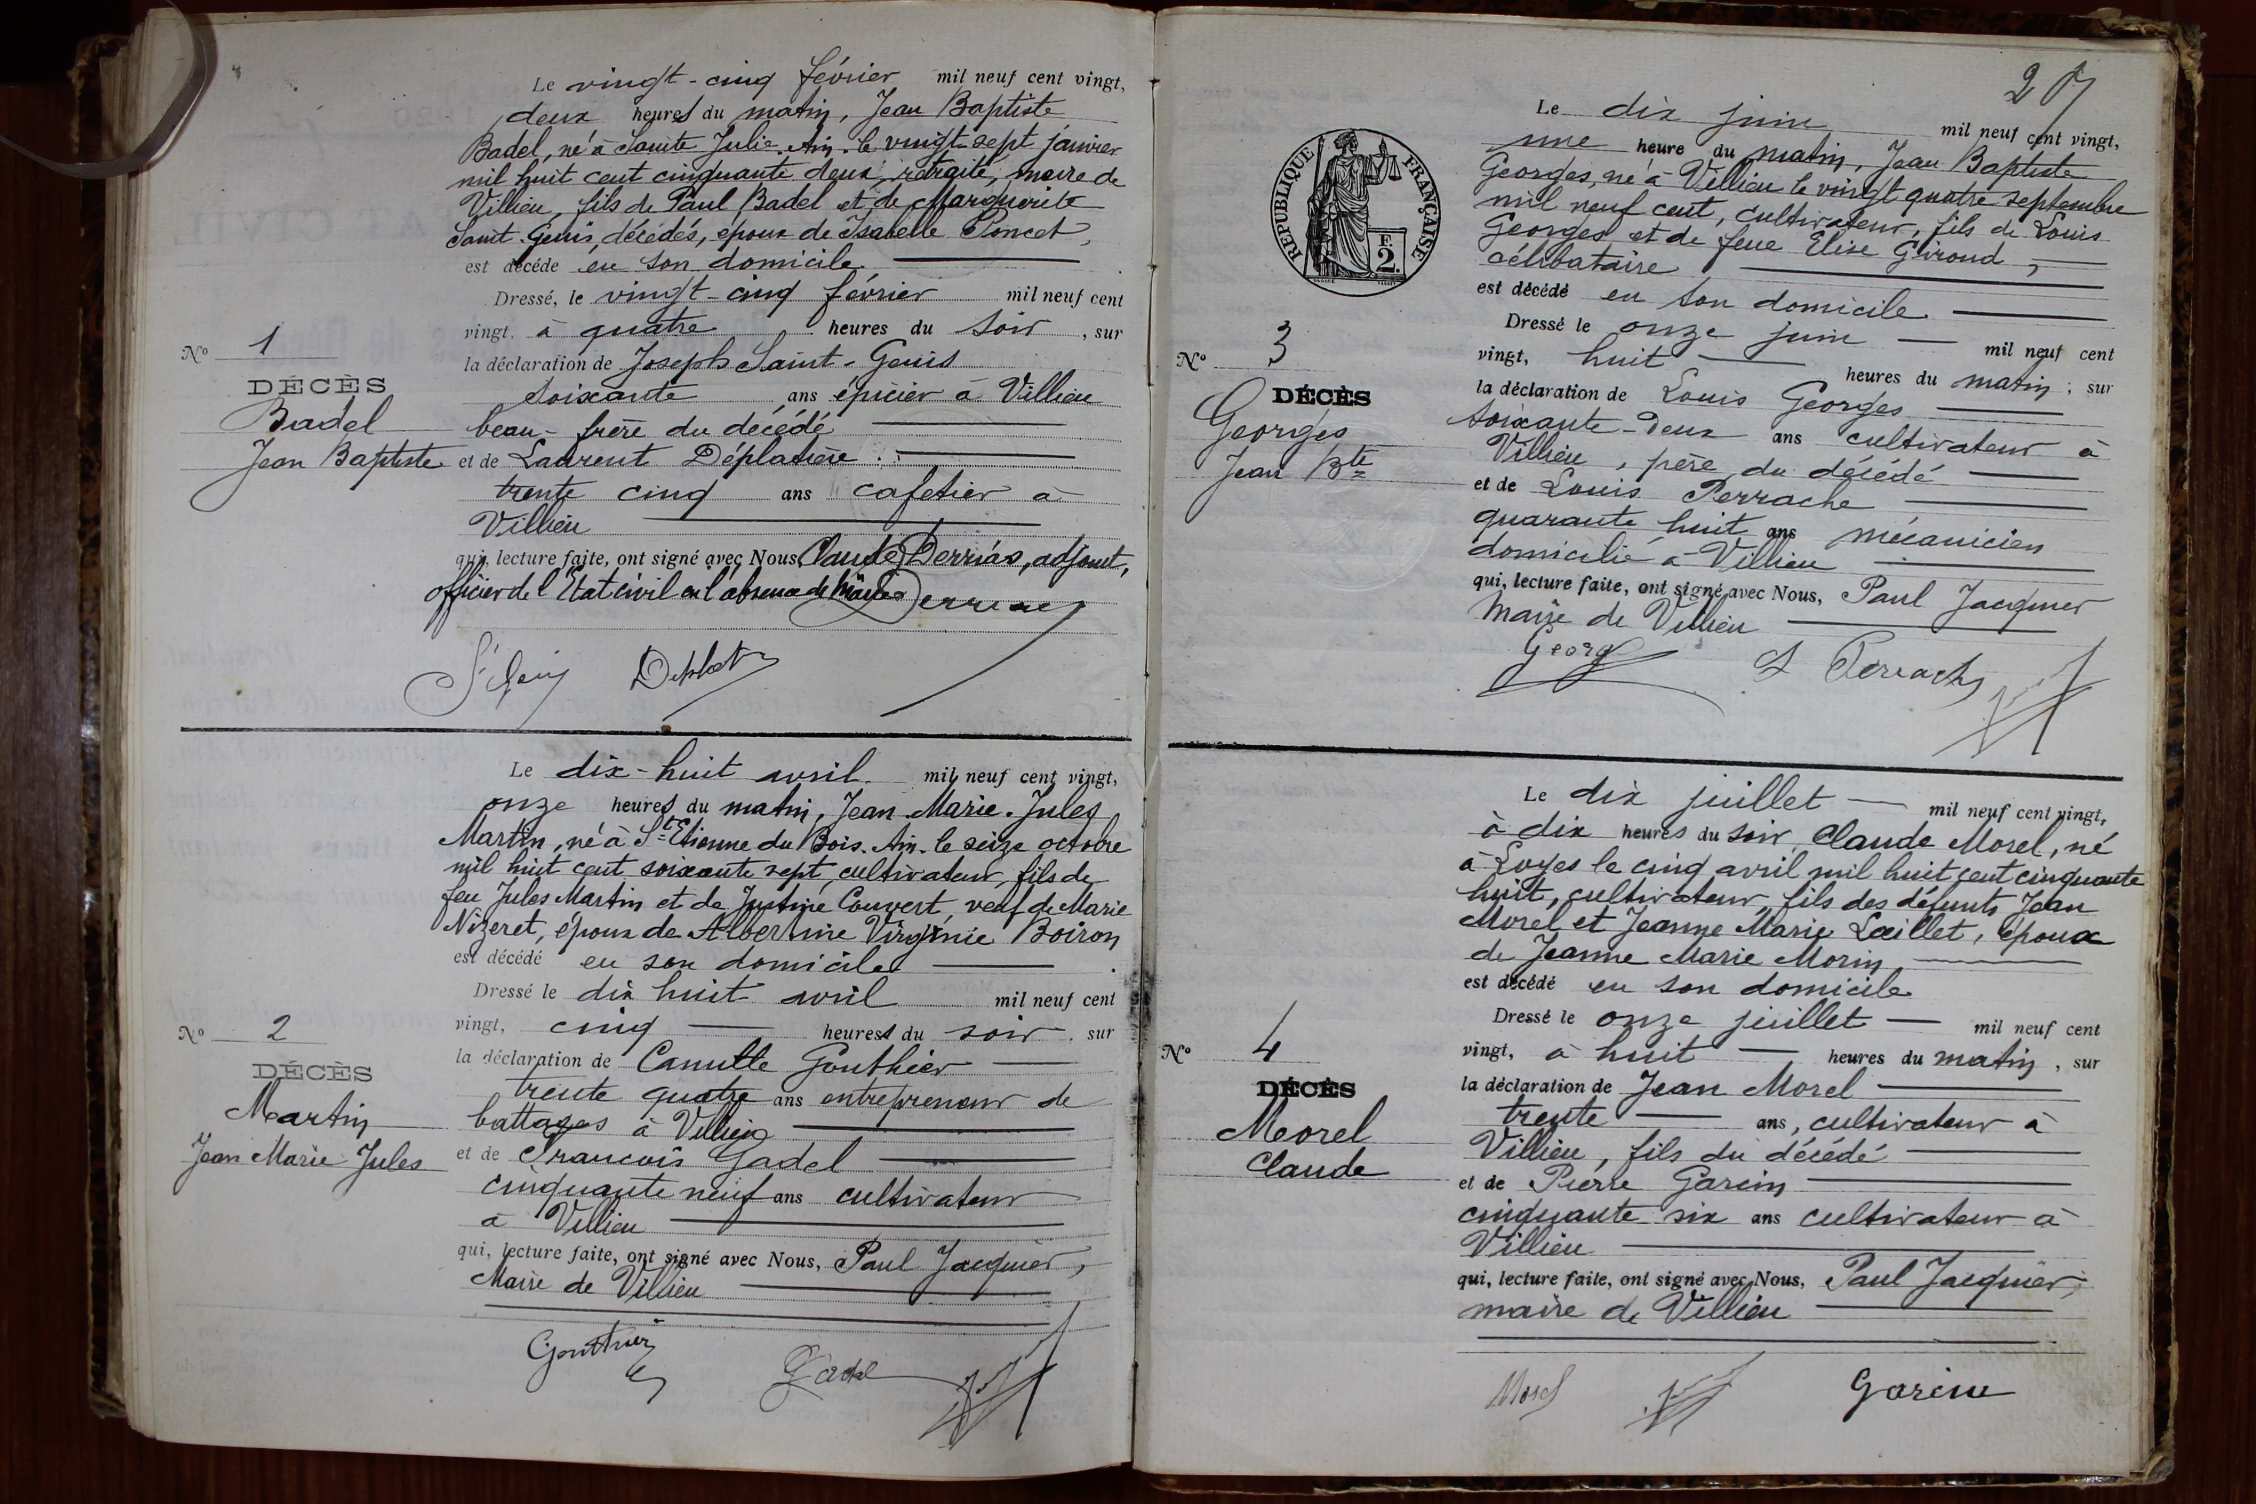 Le vingt-cinq février mil neuf cent vingt,
deux heures du matin, Jean Baptiste
Badel, né à Sainte Julie. Ain. le vingt-sept janvier
mil huit cent cinquante deux, retraité, maire de
Villieu, fils de Paul Badel et de Marguerite
Saint-Genis, décédés, époux de Isabelle Poncet,
est décédé en son domicile.
Dressé, le vingt-cinq février mil neuf cent
vingt, à quatre heures du soir, sur
la déclaration de Joseph Saint-Genis
soixante ans épicier à Villieu
beau-frère du décédé
et de Laurent Déplatière
trente cinq ans cafetier à
Villieu
qui, lecture faite, ont signé avec Nous, Claude Derrias, adjoint,
officier de l'Etat civil en l'absence de Maire Derrias
St Genis Deplat
N° 1
DÉCÈS
Badel
Jean Baptiste
Le dix-huit avril mil neuf cent vingt,
onze heures du matin, Jean Marie Jules
Martin, né à St Etienne du Bois. Ain. le seize octobre
mil huit cent soixante sept, cultivateur, fils de
feu Jules Martin et de Justine Couvert, veuf de Marie
Nizeret, époux de Albertine Virginie Boiron
est décédé en son domicile
Dressé le dix huit avril mil neuf cent
vingt, cinq heures du soir, sur
la déclaration de Camille Gonthier
trente quatre ans entrepreneur de
battages à Villieu
et de Francois Gadel
cinquante neuf ans cultivateur
à Villieu
qui, lecture faite, ont signé avec Nous, Paul Jacquier,
Maire de Villieu
Gonthier Gadel
N° 2
DÉCÈS
Martin
Jean Marie Jules
27
RÉPUBLIQUE FRANÇAISE
F.
2.
Le dix juin mil neuf cent vingt,
une heure du matin, Jean Baptiste
Georges, né à Villieu le vingt quatre septembre
mil neuf cent, cultivateur, fils de Louis
Georges et de feue Elise Giroud,
célibataire
est décédé en son domicile
Dressé le onze juin mil neuf cent
vingt, huit heures du matin, sur
la déclaration de Louis Georges
soixante-deux ans cultivateur à
Villieu, père du décédé
et de Louis Perrache
quarante huit ans mécanicien
domicilié à Villieu
qui, lecture faite, ont signé avec Nous, Paul Jacquier
Maire de Villieu
Georg L Perrach
N° 3
DÉCÈS
Georges
Jean Bte
Le dix juillet mil neuf cent vingt,
à dix heures du soir, Claude Morel, né
à Loyes le cinq avril mil huit cent cinquante
huit, cultivateur, fils des défunts Jean
Morel et Jeanne Marie Lœillet, époux
de Jeanne Marie Morin
est décédé en son domicile
Dressé le onze juillet mil neuf cent
vingt, à huit heures du matin, sur
la déclaration de Jean Morel
trente ans, cultivateur à
Villieu, fils du décédé
et de Pierre Garin
cinquante six ans cultivateur à
Villieu
qui, lecture faite, ont signé avec Nous, Paul Jacquier,
maire de Villieu
Morel Garin
N° 4
DÉCÈS
Morel
Claude